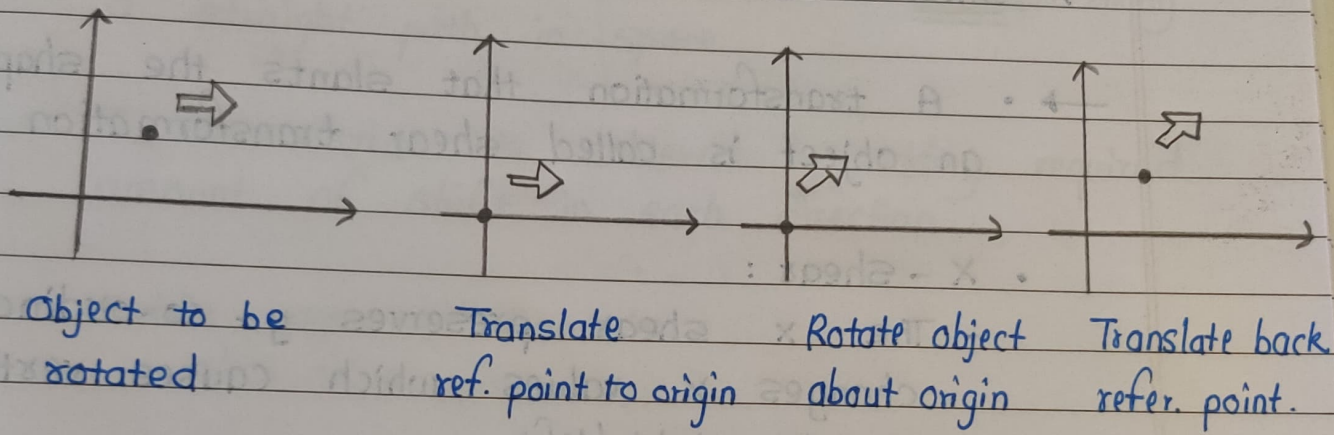 Object to be
rotated
Translate
ref. point to origin
Rotate object
about origin
Translate back
refer. point.